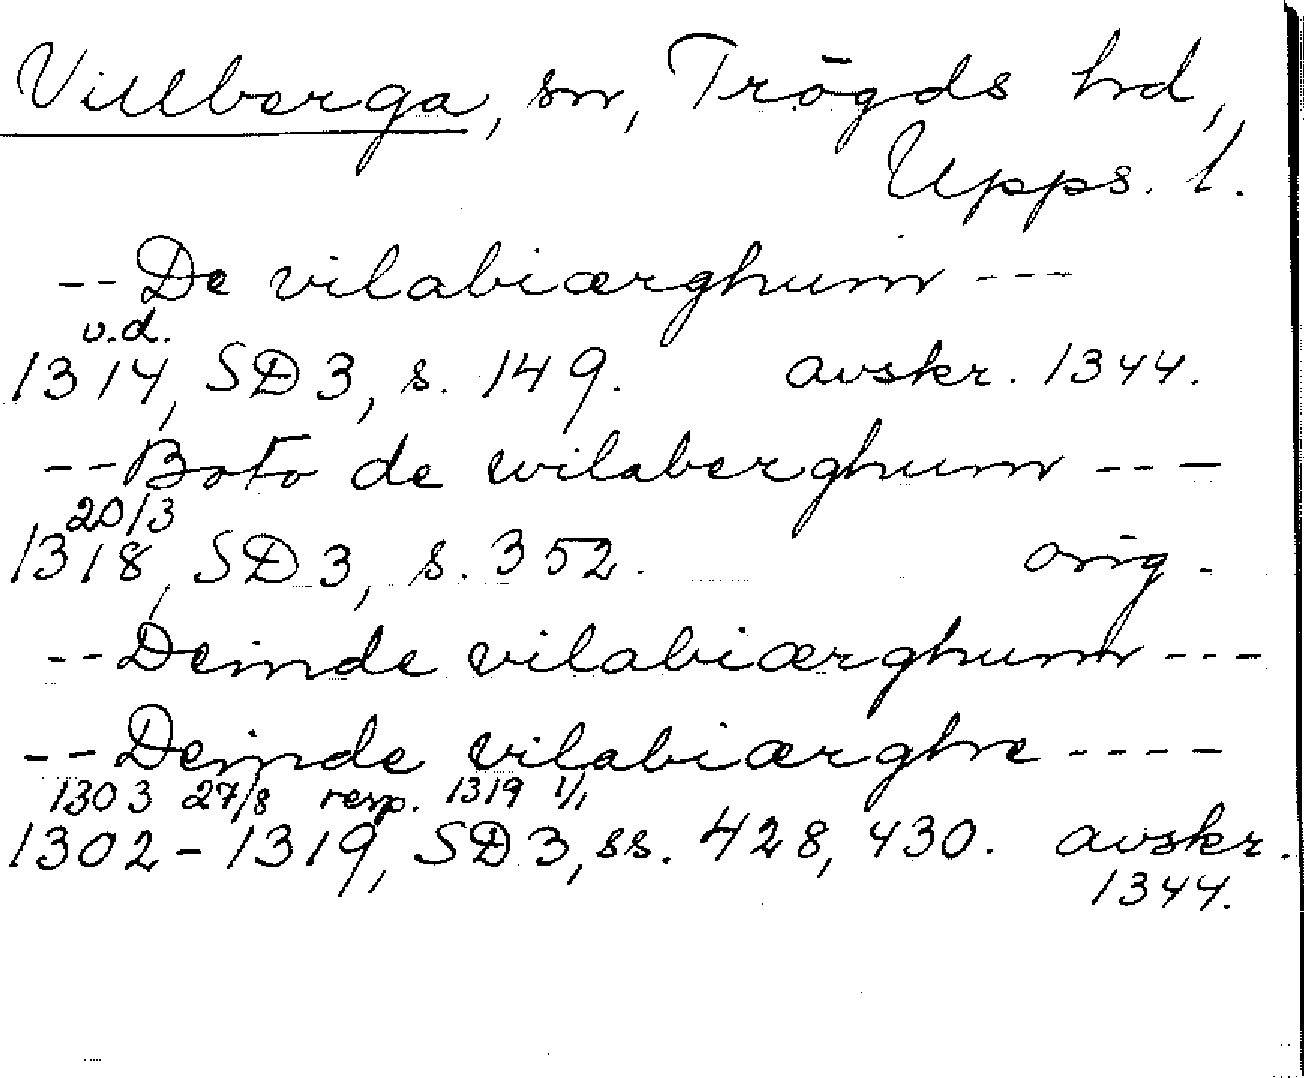 Villberga, sn, Trögds hd,
Upps. l.
--De vilabiærghum---
u.d.
1314, SD3, s. 149. avskr. 1344.
--Boto de wilaberghum---
20/3
1318, SD3, s. 352. orig.
--Deinde vilabiærghum---
--Deinde vilabiærghe----
1303 27/8 resp. 1319 1/1
1302-1319, SD3, ss. 428, 430. avskr.
1344.